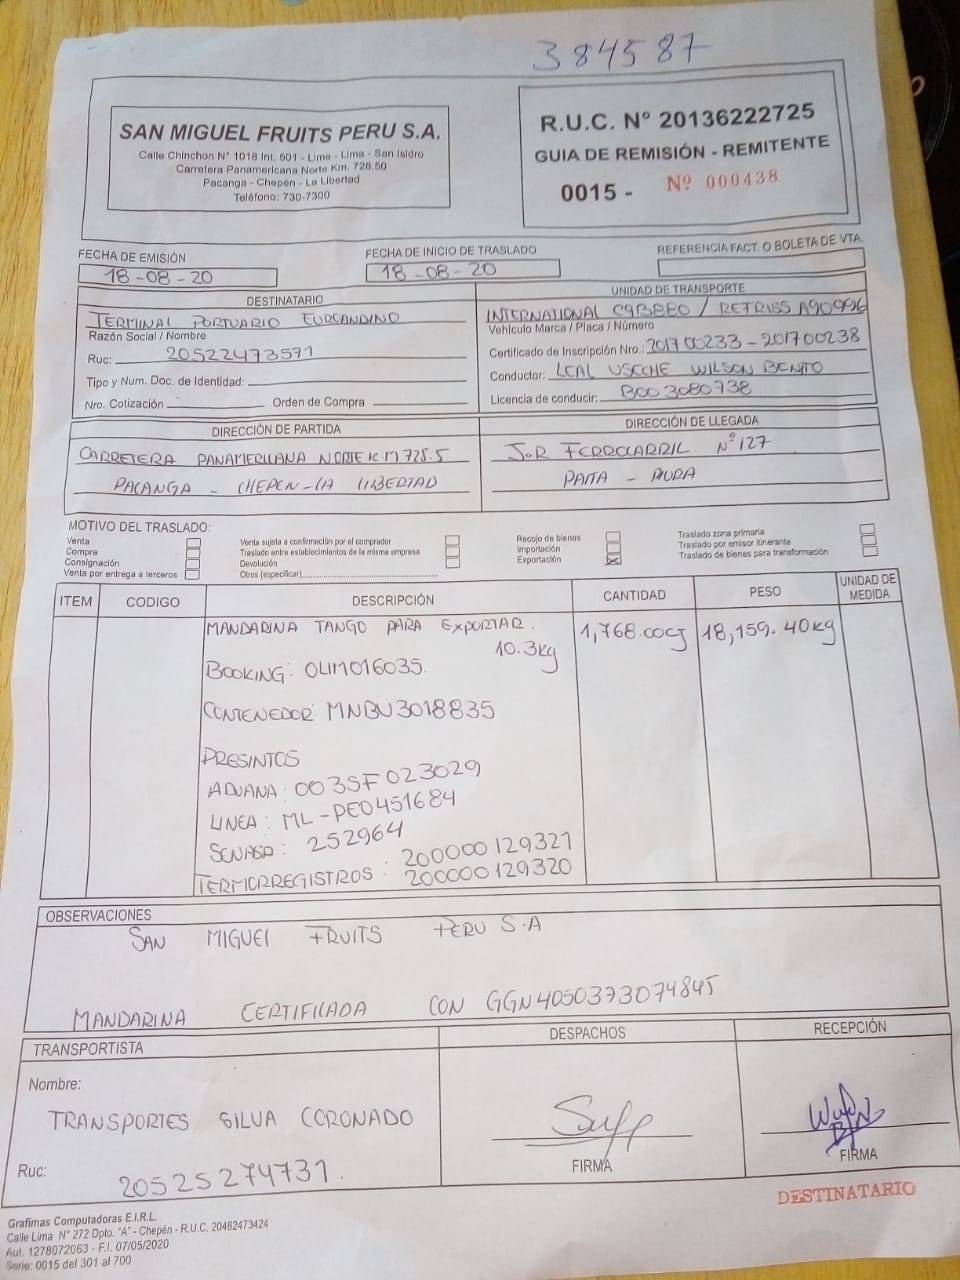 384587
SAN MIGUEL FRUITS PERU S.A.
Calle Chinchon N° 1018 Int. 501 - Lima - Lima - San Isidro
Carretera Panamericana Norte Km. 728.50
Pacanga - Chepén - La Libertad
Teléfono: 730-7300
R.U.C. N° 20136222725
GUIA DE REMISIÓN - REMITENTE
0015 - Nº 000438
FECHA DE EMISIÓN
18-08-20
FECHA DE INICIO DE TRASLADO
18-08-20
REFERENCIA FACT. O BOLETA DE VTA.
DESTINATARIO
TERMINAL PORTUARIO EUROANDINO
Razón Social / Nombre
Ruc: 20522473571
Tipo y Num. Doc. de Identidad:
Nro. Cotización Orden de Compra
UNIDAD DE TRANSPORTE
INTERNATIONAL C9B880 / A90996
Vehiculo Marca / Placa / Número
Certificado de Inscripción Nro.: 201700233-201700238
Conductor: LEAL USECHE WILSON BENTO
Licencia de conducir: B003080738
DIRECCIÓN DE PARTIDA
CARRETERA PANAMERICANA NORTE KM 728.5
PACANGA - CHEPEN-LA LIBERTAD
DIRECCIÓN DE LLEGADA
FERROCARRIL Nº 127
PAITA - PIURA
MOTIVO DEL TRASLADO:
Venta
Compra
Consignación
Venta por entrega a terceros
Venta sujeta a confirmación por el comprador
Traslado entre establecimientos de la misma empresa
Devolución
Otros (especificar)
Recojo de bienes
Importación
Exportación
Traslado zona primaria
Traslado por emisor itinerante
Traslado de bienes para transformación
ITEM CODIGO DESCRIPCIÓN CANTIDAD PESO UNIDAD DE MEDIDA
MANDARINA TANGO PARA EXPORTAR. 1,768.00CJ 18,159.40kg
10.3kg
BOOKING: OLIM016035.
CONTENEDOR: MNBU3018835
PRESINTOS
ADUANA: 003SF023029
LINEA: ML-PE0451684
SENASA: 252964
TERMORREGISTROS: 200000129321
200000129320
OBSERVACIONES
SAN MIGUEL FRUITS PERU S.A
MANDARINA CERTIFICADA CON GGN4050373074845
TRANSPORTISTA
Nombre:
TRANSPORTES SILVA CORONADO
Ruc:
20525274731.
DESPACHOS
FIRMA
RECEPCIÓN
FIRMA
DESTINATARIO
Grafimas Computadoras E.I.R.L.
Calle Lima N° 272 Dpto. "A" - Chepén - R.U.C. 20482473424
Aut. 1278072063 - F.I. 07/05/2020
Serie: 0015 del 301 al 700